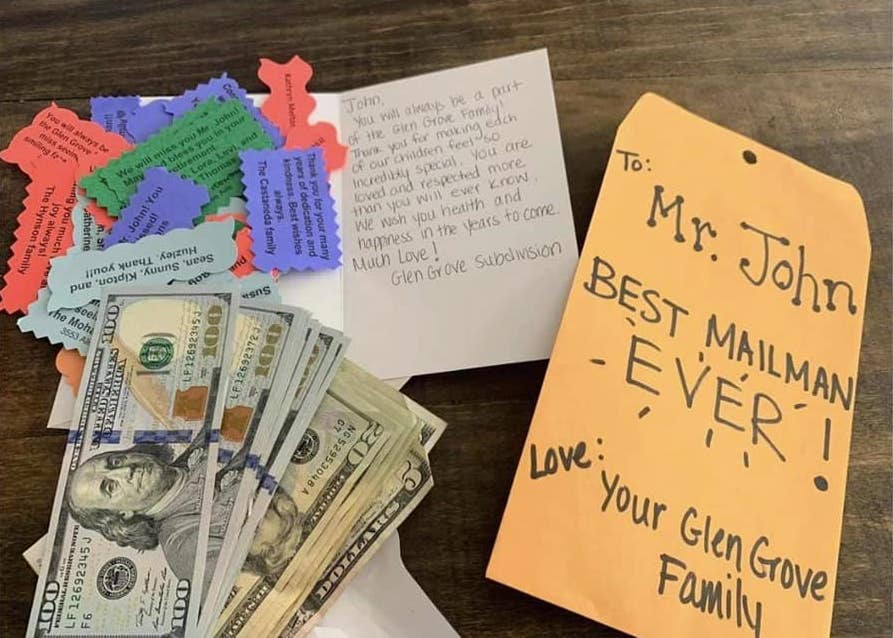 John,
You will always be a part
of the Glen Grove Family!
Thank you for making each
of our children feel so
incredibly special. You are
loved and respected more
than you will ever know.
We wish you health and
happiness in the years to come.
Much Love!
Glen Grove Subdivision
To:
Mr. John
BEST MAILMAN
EVER!
Love:
Your Glen Grove
Family
You will always be
the Glen Grove
miss seein
smiling f
We will miss you Mr. John!
bless you in your
retirement.
Levi
Thomas
Kathryn
Thank you for your many
years of dedication and
kindness. Best wishes
always.
The Castaneda family
John! You
you much!
Joy always!
The Hynson family
atherine
Sean, Sunny, Kipton, and
Huzley. Thank you!!
Susa
The Moh
3553
100
LF12692345J
F6
100
100
LF12692345J
100
LF12692372J
100
20
DOLLARS